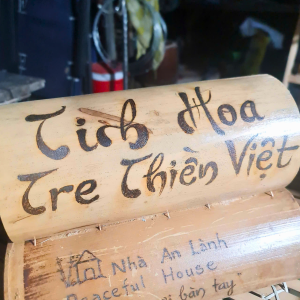 Tích Hoa
Tre Thiền Việt
Nhà An Lành
Peaceful House
bàn tay